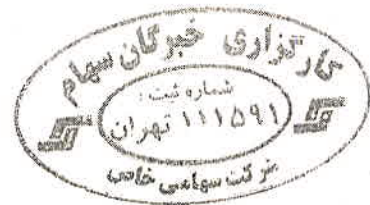 کارگزاری خبرگان سهام
شماره ثبت :
۱۱۱۵۹۱ تهران
شرکت سهامی خاص